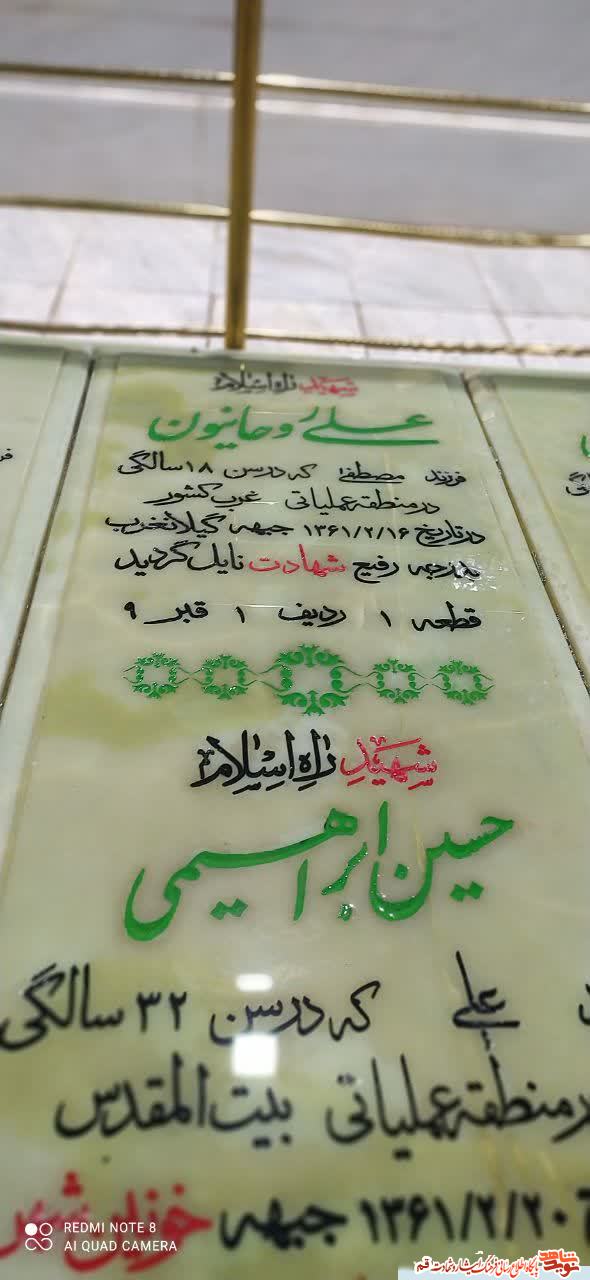 شهید راه اسلام
علی روحانیون
فرزند مصطفی که در سن ۱۸ سالگی
در منطقه عملیاتی غرب کشور
در تاریخ ۱۳۶۱/۲/۱۶ جبهه گیلانغرب
به درجه رفیع شهادت نایل گردید
قطعه ۱ ردیف ۱ قبر ۹
شهید راه اسلام
حسین ابراهیمی
علی که در سن ۳۲ سالگی
در منطقه عملیاتی بیت المقدس
۱۳۶۱/۲/۲۰ جبهه خونین شهر
REDMI NOTE 8
AI QUAD CAMERA
نوید شاهد پایگاه اطلاع رسانی فرهنگ ایثار و شهادت قم